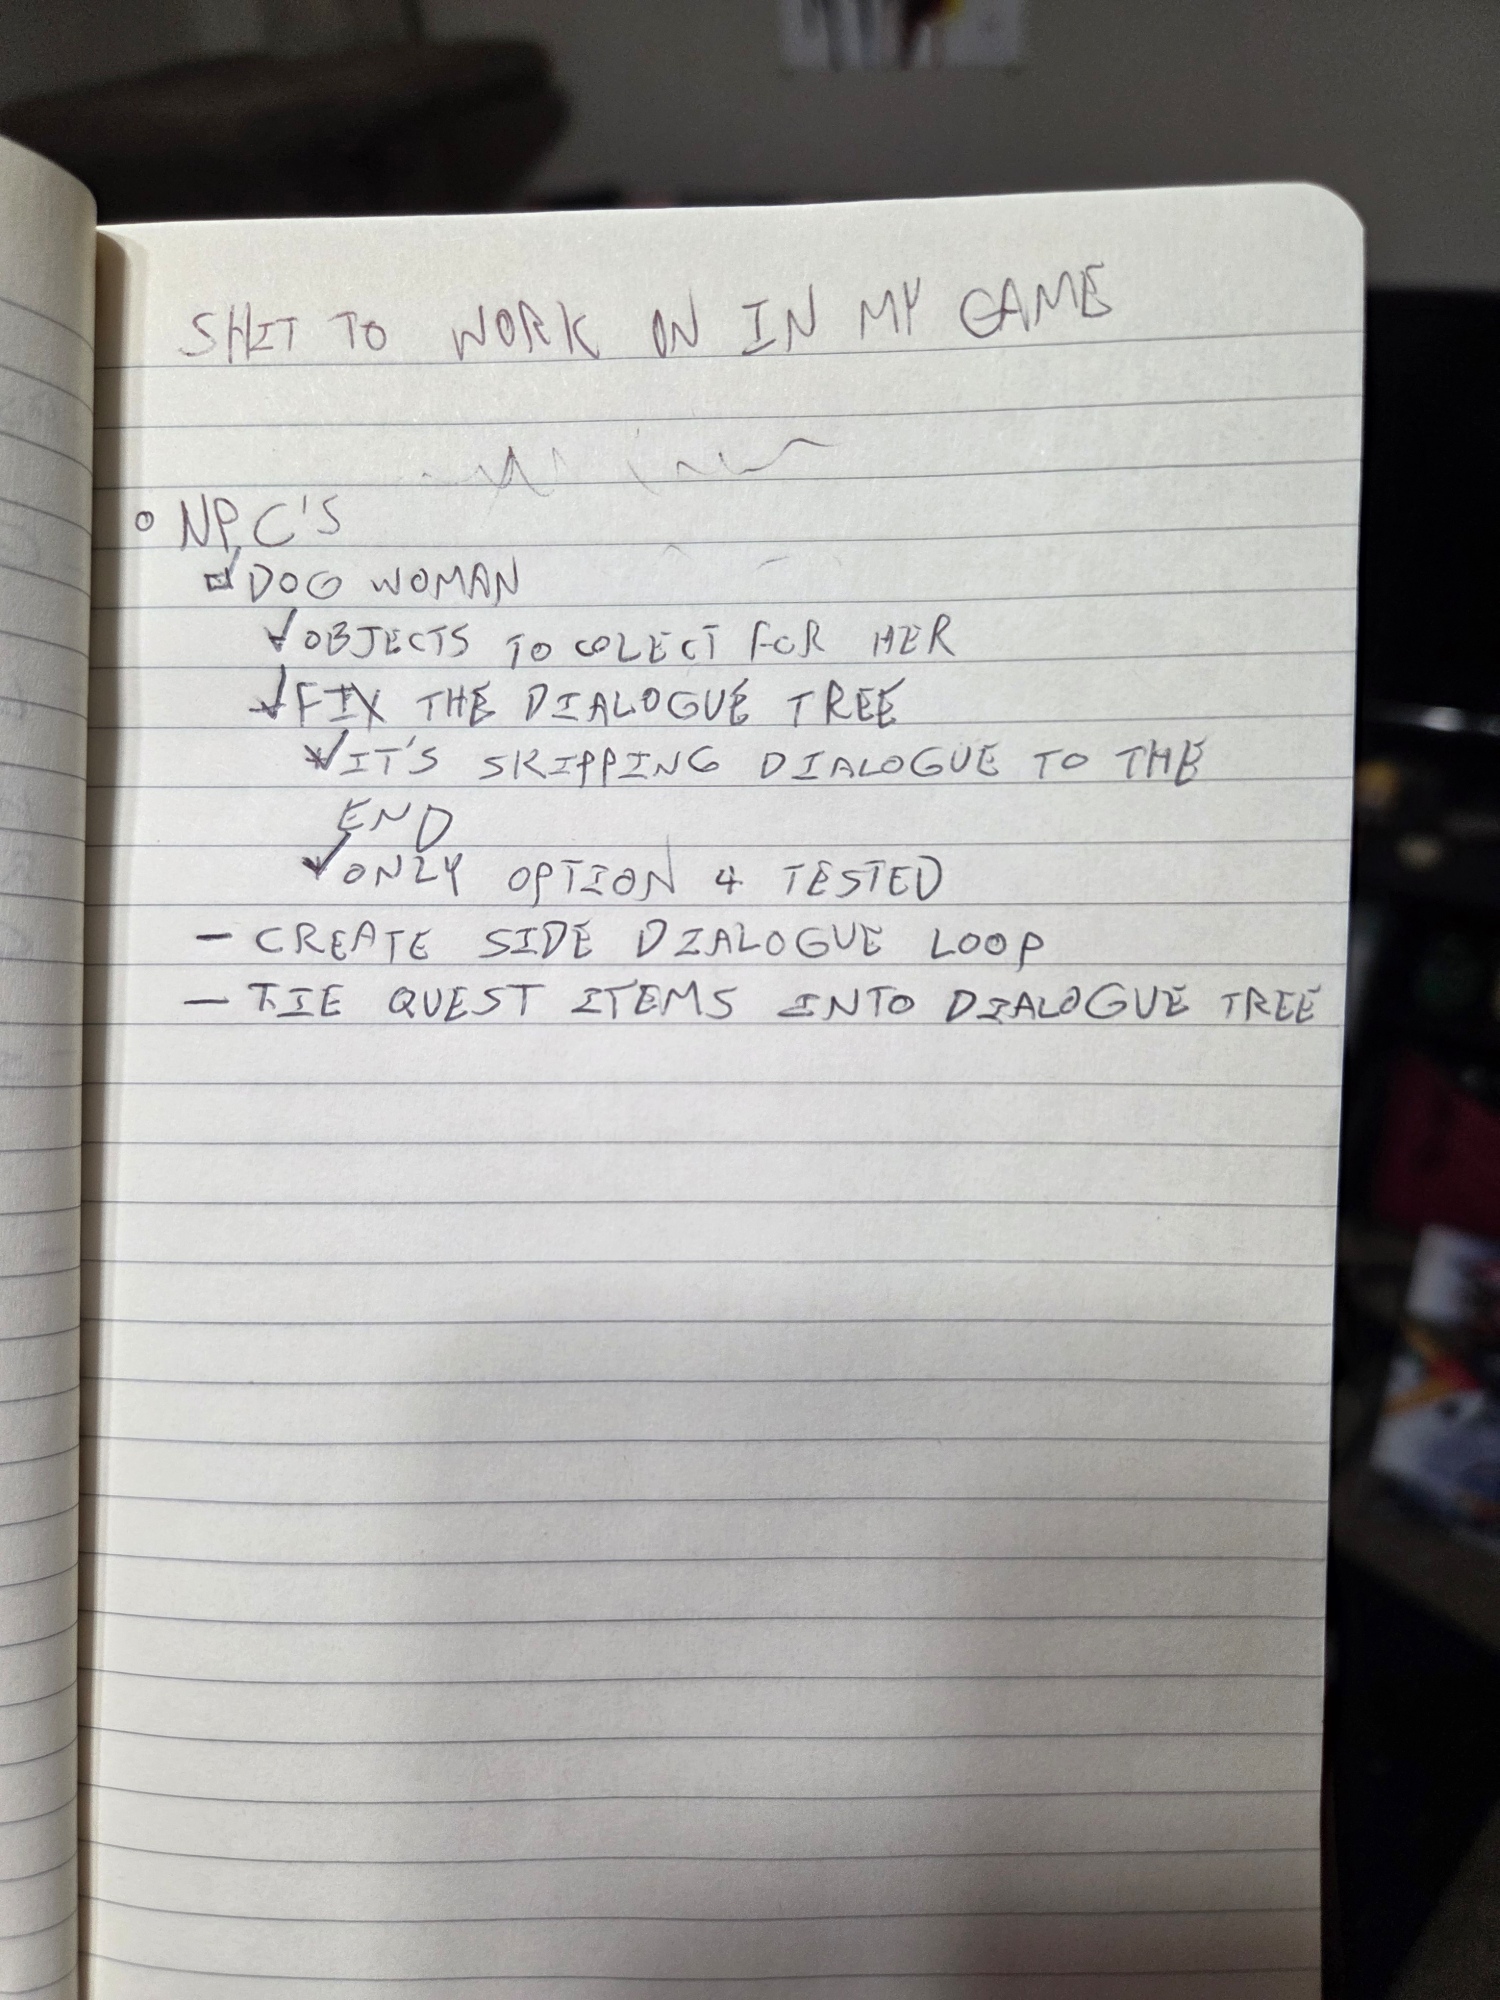 SHIT TO WORK ON IN MY GAME
NPC'S
DOG WOMAN
OBJECTS TO COLECT FOR HER
FIX THE DIALOGUE TREE
IT'S SKIPPING DIALOGUE TO THE
END
ONLY OPTION 4 TESTED
- CREATE SIDE DIALOGUE LOOP
- TIE QUEST ITEMS INTO DIALOGUE TREE